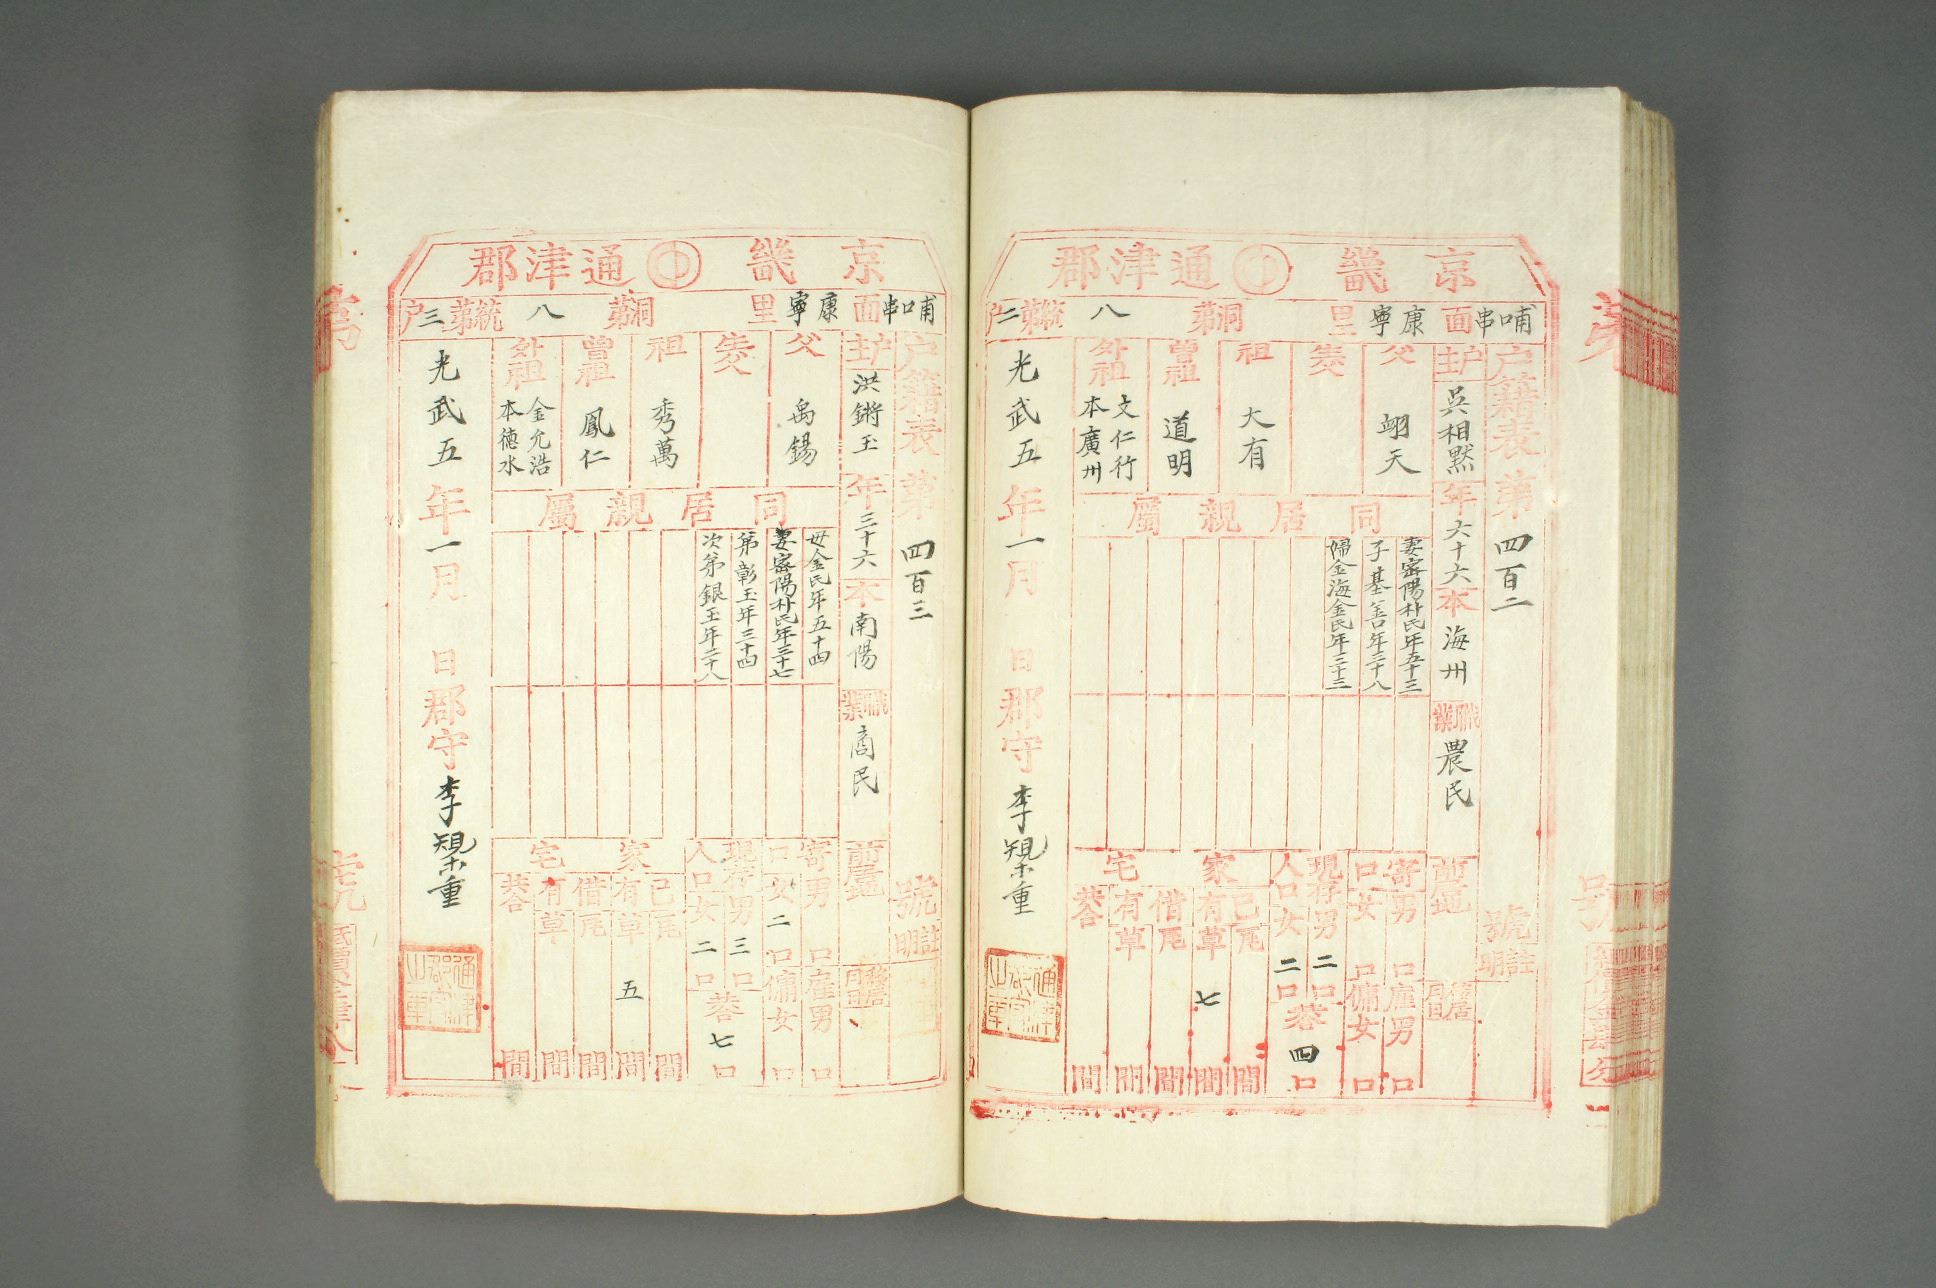 京畿 通津郡
哺口串面 康寧里 洞第 八 統第二戶
戶籍表 第 四百二 號
註明
戶主 吳相默 年 六十六 本 海州 職業 農民 前居地
移居月日
父 翊天
生父
祖 大有
曾祖 道明
外祖 文仁行
本廣州
同居親屬
妻密陽朴氏年五十三
子基善年三十八
婦金海金氏年三十三
寄口 男 口 女 口 雇男 口 傭女 口
現存人口 男 二 口 女 二 口 共 四 口
家宅
已有 瓦 間 草 七 間
借有 瓦 間 草 間
共合 間
光武五年一月 日 郡守 李 重
京畿 通津郡
哺口串面 康寧里 洞第 八 統第三戶
戶籍表 第 四百三 號
註明
戶主 洪鏘玉 年 三十六 本 南陽 職業 商民 前居地
移居月日
父 禹錫
生父
祖 秀萬
曾祖 鳳仁
外祖 金允浩
本德水
同居親屬
母金氏年五十四
妻密陽朴氏年三十七
弟彰玉年三十四
次弟銀玉年二十八
寄口 男 口 女 二 口 雇男 口 傭女 口
現存人口 男 三 口 女 二 口 共 七 口
家宅
已有 瓦 間 草 五 間
借有 瓦 間 草 間
共合 間
光武五年一月 日 郡守 李 重